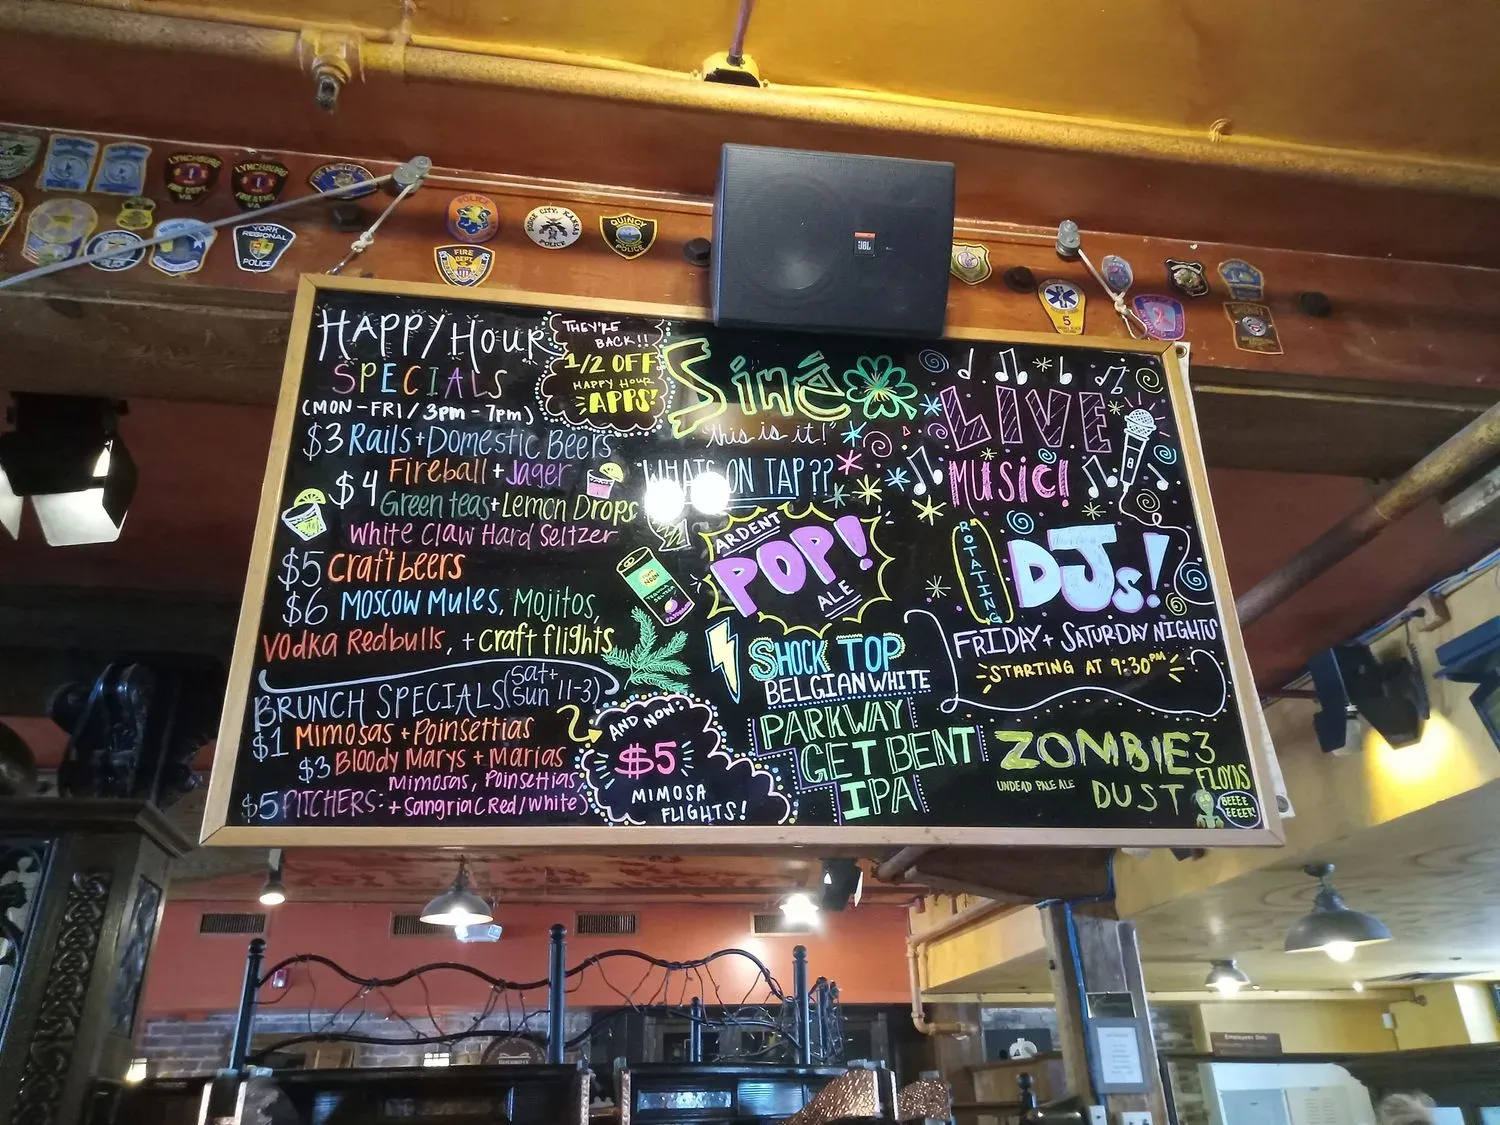 LYNCHBURG
FIRE DEPT.
VA
LYNCHBURG
FIRE & EMS
VA
YORK
REGIONAL
POLICE
POLICE
FIRE
DEPT.
DODGE CITY, KANSAS
POLICE
QUINCY
POLICE
JBL
5
HAPPY HOUR
SPECIALS
(MON-FRI/3PM-7PM)
THEY'RE
BACK!!
1/2 OFF
HAPPY HOUR
APPS!
$3 Rails+Domestic Beers
$4 Fireball + Jager
Green teas+Lemon Drops
White Claw Hard Seltzer
$5 Craft beers
$6 Moscow Mules, Mojitos,
Vodka Redbulls, + craft flights
BRUNCH SPECIALS (Sat+
Sun 11-3)
$1 Mimosas + Poinsettias
$3 Bloody Marys + Marias
$5 PITCHERS: Mimosas, Poinsettias,
+ Sangria (Red/White)
AND NOW:
$5
MIMOSA
FLIGHTS!
Siné
"this is it!"
WHATS ON TAP??
NOON
ARDENT
POP!
ALE
SHOCK TOP
BELGIAN WHITE
PARKWAY
GET BENT
IPA
LIVE
MUSIC!
ROTATING
DJs!
FRIDAY + SATURDAY NIGHTS
STARTING AT 9:30PM
ZOMBIE
DUST
UNDEAD PALE ALE
3
FLOYDS
BEEEE
EEEER!
Employees Only